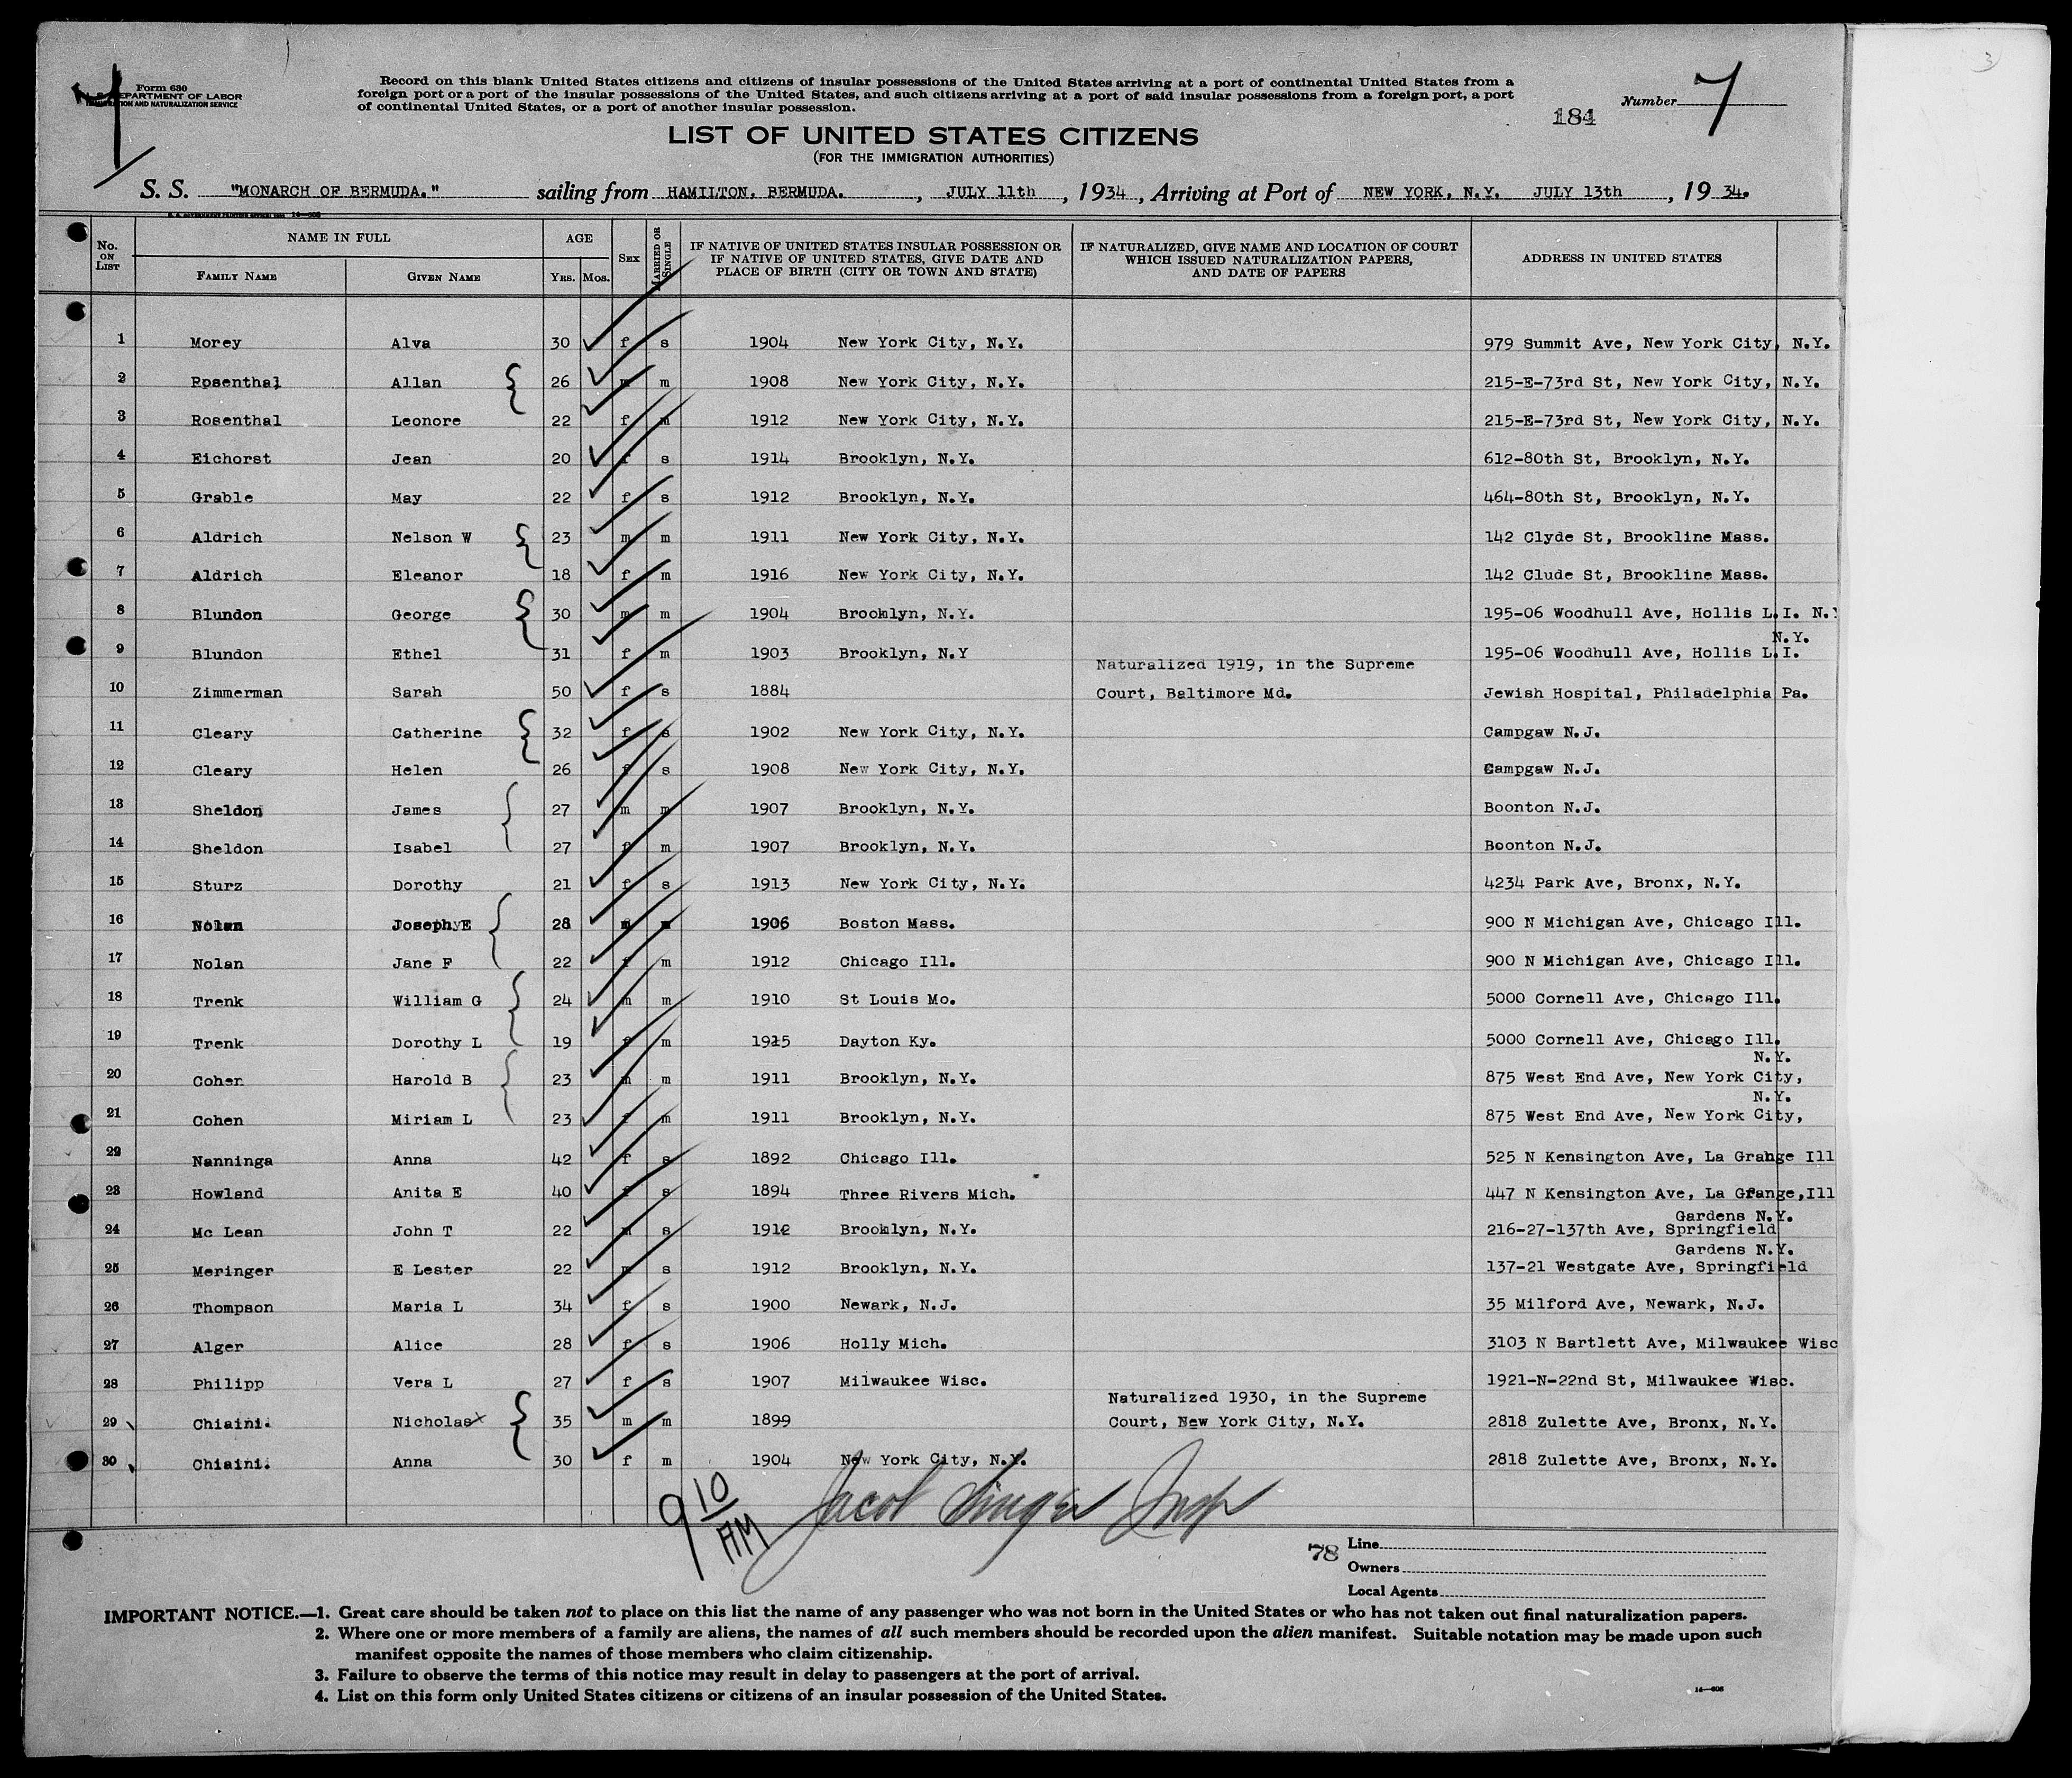 Form 630
U. S. DEPARTMENT OF LABOR
IMMIGRATION AND NATURALIZATION SERVICE
Record on this blank United States citizens and citizens of insular possessions of the United States arriving at a port of continental United States from a
foreign port or a port of the insular possessions of the United States, and such citizens arriving at a port of said insular possessions from a foreign port, a port
of continental United States, or a port of another insular possession.
Number 7
184
3
LIST OF UNITED STATES CITIZENS
(FOR THE IMMIGRATION AUTHORITIES)
S. S. "MONARCH OF BERMUDA." sailing from HAMILTON, BERMUDA. , JULY 11th , 1934 , Arriving at Port of NEW YORK, N.Y. JULY 13th , 19 34.
No. ON LIST NAME IN FULL FAMILY NAME GIVEN NAME AGE YRS. MOS. SEX MARRIED OR SINGLE IF NATIVE OF UNITED STATES INSULAR POSSESSION OR IF NATIVE OF UNITED STATES, GIVE DATE AND PLACE OF BIRTH (CITY OR TOWN AND STATE) IF NATURALIZED, GIVE NAME AND LOCATION OF COURT WHICH ISSUED NATURALIZATION PAPERS, AND DATE OF PAPERS ADDRESS IN UNITED STATES
1 Morey Alva 30 f s 1904 New York City, N.Y. 979 Summit Ave, New York City, N.Y.
2 Rosenthal Allan 26 m m 1908 New York City, N.Y. 215-E-73rd St, New York City, N.Y.
3 Rosenthal Leonore 22 f m 1912 New York City, N.Y. 215-E-73rd St, New York City, N.Y.
4 Eichorst Jean 20 f s 1914 Brooklyn, N.Y. 612-80th St, Brooklyn, N.Y.
5 Grable May 22 f s 1912 Brooklyn, N.Y. 464-80th St, Brooklyn, N.Y.
6 Aldrich Nelson W 23 m m 1911 New York City, N.Y. 142 Clyde St, Brookline Mass.
7 Aldrich Eleanor 18 f m 1916 New York City, N.Y. 142 Clude St, Brookline Mass.
8 Blundon George 30 m m 1904 Brooklyn, N.Y. 195-06 Woodhull Ave, Hollis L.I. N.Y
N.Y.
9 Blundon Ethel 31 f m 1903 Brooklyn, N.Y 195-06 Woodhull Ave, Hollis L.I.
Naturalized 1919, in the Supreme
10 Zimmerman Sarah 50 f s 1884 Court, Baltimore Md. Jewish Hospital, Philadelphia Pa.
11 Cleary Catherine 32 f s 1902 New York City, N.Y. Campgaw N.J.
12 Cleary Helen 26 f s 1908 New York City, N.Y. Campgaw N.J.
13 Sheldon James 27 m m 1907 Brooklyn, N.Y. Boonton N.J.
14 Sheldon Isabel 27 f m 1907 Brooklyn, N.Y. Boonton N.J.
15 Sturz Dorothy 21 f s 1913 New York City, N.Y. 4234 Park Ave, Bronx, N.Y.
16 Nolan Joseph E 28 m m 1906 Boston Mass. 900 N Michigan Ave, Chicago Ill.
17 Nolan Jane F 22 f m 1912 Chicago Ill. 900 N Michigan Ave, Chicago Ill.
18 Trenk William G 24 m m 1910 St Louis Mo. 5000 Cornell Ave, Chicago Ill.
19 Trenk Dorothy L 19 f m 1915 Dayton Ky. 5000 Cornell Ave, Chicago Ill.
N.Y.
20 Cohen Harold B 23 m m 1911 Brooklyn, N.Y. 875 West End Ave, New York City,
N.Y.
21 Cohen Miriam L 23 f m 1911 Brooklyn, N.Y. 875 West End Ave, New York City,
22 Nanninga Anna 42 f s 1892 Chicago Ill. 525 N Kensington Ave, La Grange Ill
23 Howland Anita E 40 f s 1894 Three Rivers Mich. 447 N Kensington Ave, La Grange,Ill
Gardens N.Y.
24 Mc Lean John T 22 m s 1912 Brooklyn, N.Y. 216-27-137th Ave, Springfield
Gardens N.Y.
25 Meringer E Lester 22 m s 1912 Brooklyn, N.Y. 137-21 Westgate Ave, Springfield
26 Thompson Maria L 34 f s 1900 Newark, N.J. 35 Milford Ave, Newark, N.J.
27 Alger Alice 28 f s 1906 Holly Mich. 3103 N Bartlett Ave, Milwaukee Wisc
28 Philipp Vera L 27 f s 1907 Milwaukee Wisc. 1921-N-22nd St, Milwaukee Wisc.
Naturalized 1930, in the Supreme
29 Chiaini. Nicholas 35 m m 1899 Court, New York City, N.Y. 2818 Zulette Ave, Bronx, N.Y.
30 Chiaini. Anna 30 f m 1904 New York City, N.Y. 2818 Zulette Ave, Bronx, N.Y.
9 10 AM Jacob Singer Insp
78 Line
Owners
Local Agents
IMPORTANT NOTICE.—1. Great care should be taken not to place on this list the name of any passenger who was not born in the United States or who has not taken out final naturalization papers.
2. Where one or more members of a family are aliens, the names of all such members should be recorded upon the alien manifest. Suitable notation may be made upon such
manifest opposite the names of those members who claim citizenship.
3. Failure to observe the terms of this notice may result in delay to passengers at the port of arrival.
4. List on this form only United States citizens or citizens of an insular possession of the United States.